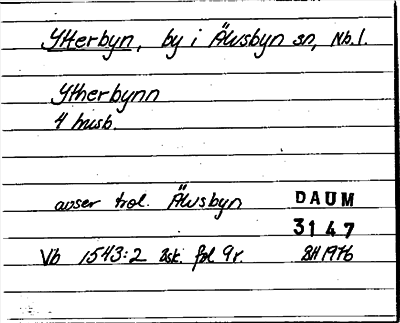 Ytterbyn, by i Älvsbyn sn, Nb.l.
Ytherbynn
4 husb.
avser trol. Älvsbyn
DAUM
3147
Vb 1543:2 ask. fol 9r.
BH 1976